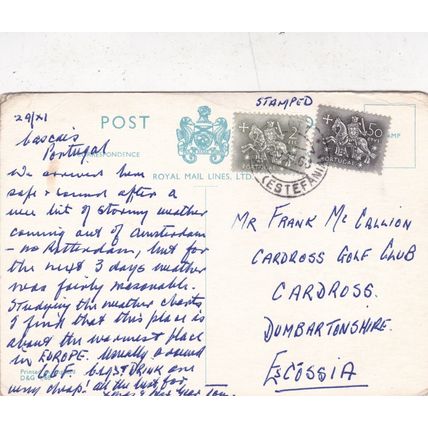 29/XI
Cascais
Portugal
POST
STAMPED
CORRESPONDENCE
ROYAL MAIL LINES, LTD.
We arrived here
safe & sound after a
wee bit of stormy weather
coming out of Amsterdam
- no Rotterdam, but for
the next 3 days weather
was fairly reasonable.
Studying the weather charts
I find that this place is
about the warmest place
in EUROPE. Usually around
60F. DRINK are
very cheap! all the best for
Xmas & New Year Tom.
2
1$50
PORTUGAL
(ESTEFANIA)
MR FRANK MCCALLION
CARDROSS GOLF CLUB
CARDROSS.
DUMBARTONSHIRE.
ESCÓSSIA
Printed
D&G